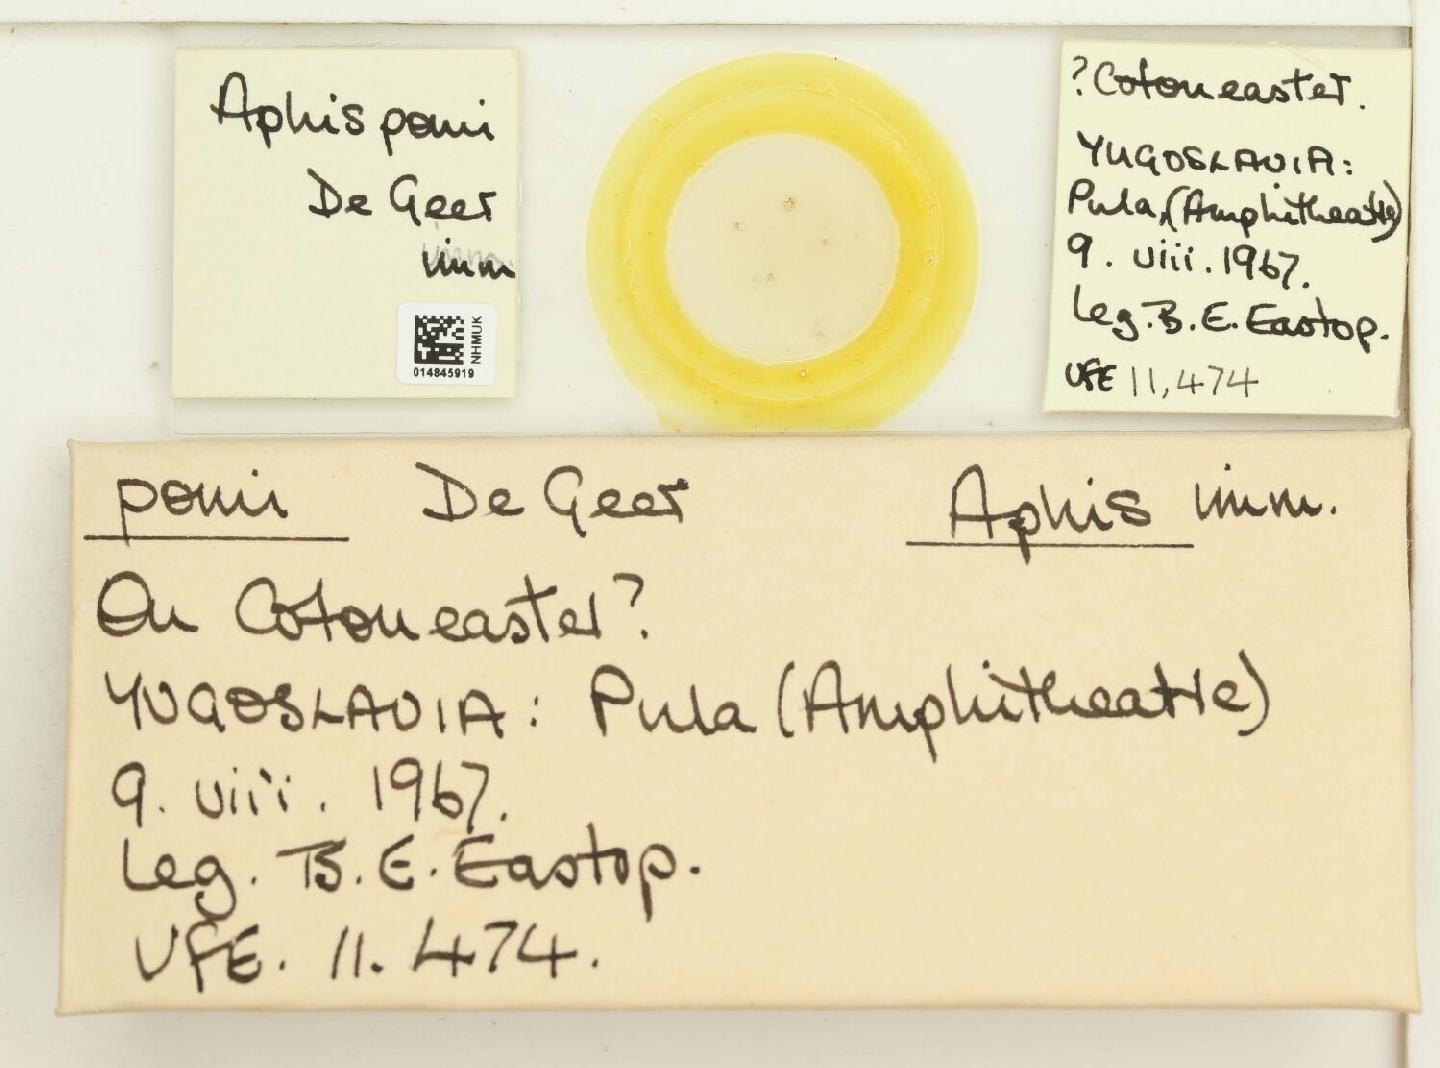 Aphis pomi
De Geer
imm
NHMUK
014845919
?Cotoneaster.
YUGOSLAVIA:
Pula, (Amphitheatre)
9. viii. 1967.
Leg. B. E. Eastop.
VFE 11,474
pomi De Geer Aphis imm.
On Cotoneaster?
YUGOSLAVIA: Pula (Amphitheatre)
9. viii. 1967.
Leg. B. E. Eastop.
VFE. 11. 474.